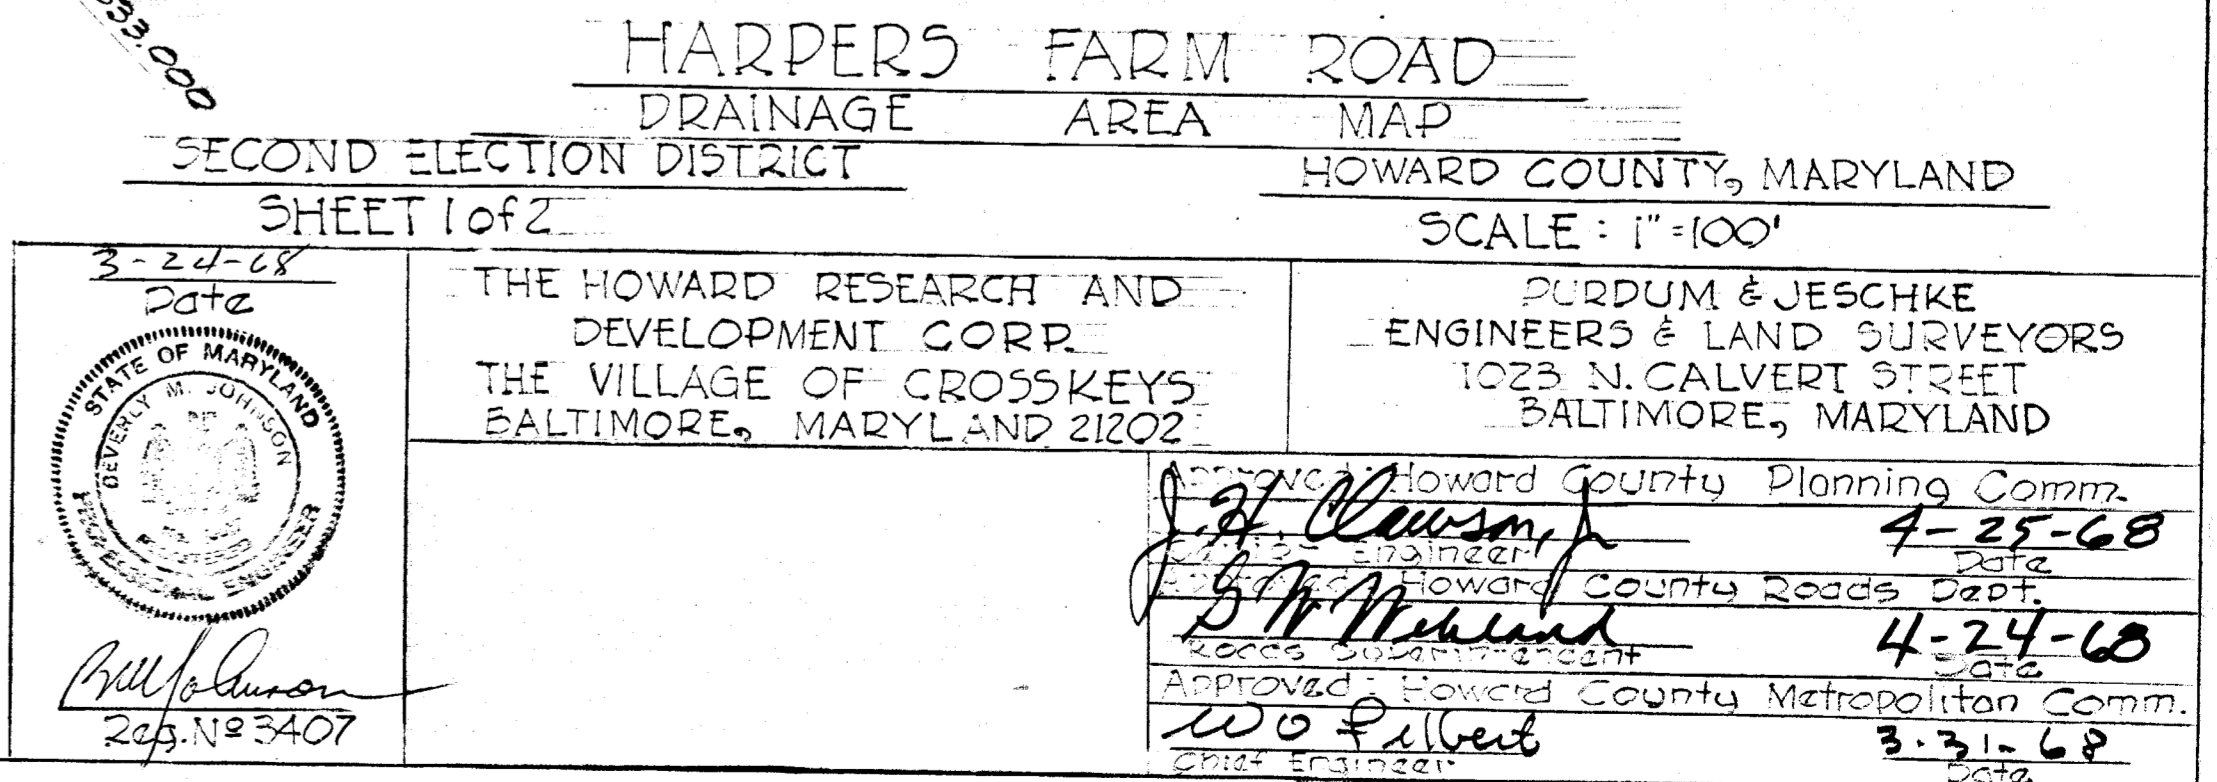 33.000
HARPERS FARM ROAD
DRAINAGE AREA MAP
SECOND ELECTION DISTRICT
HOWARD COUNTY, MARYLAND
SHEET 1 of 2
SCALE : 1"=100'
3-24-68
Date
STATE OF MARYLAND
BEVERLY M. JOHNSON
PROFESSIONAL ENGINEER
Bill Johnson
Reg. Nº 3407
THE HOWARD RESEARCH AND
DEVELOPMENT CORP.
THE VILLAGE OF CROSS KEYS
BALTIMORE, MARYLAND 21202
PURDUM & JESCHKE
ENGINEERS & LAND SURVEYORS
1023 N. CALVERT STREET
BALTIMORE, MARYLAND
Approved: Howard County Planning Comm.
J. H. Clawson, Jr 4-25-68
Engineer Date
Approved: Howard County Roads Dept.
G W 4-24-68
Roads Superintendent Date
Approved: Howard County Metropolitan Comm.
W O Filbert 3.31-68
Chief Engineer Date